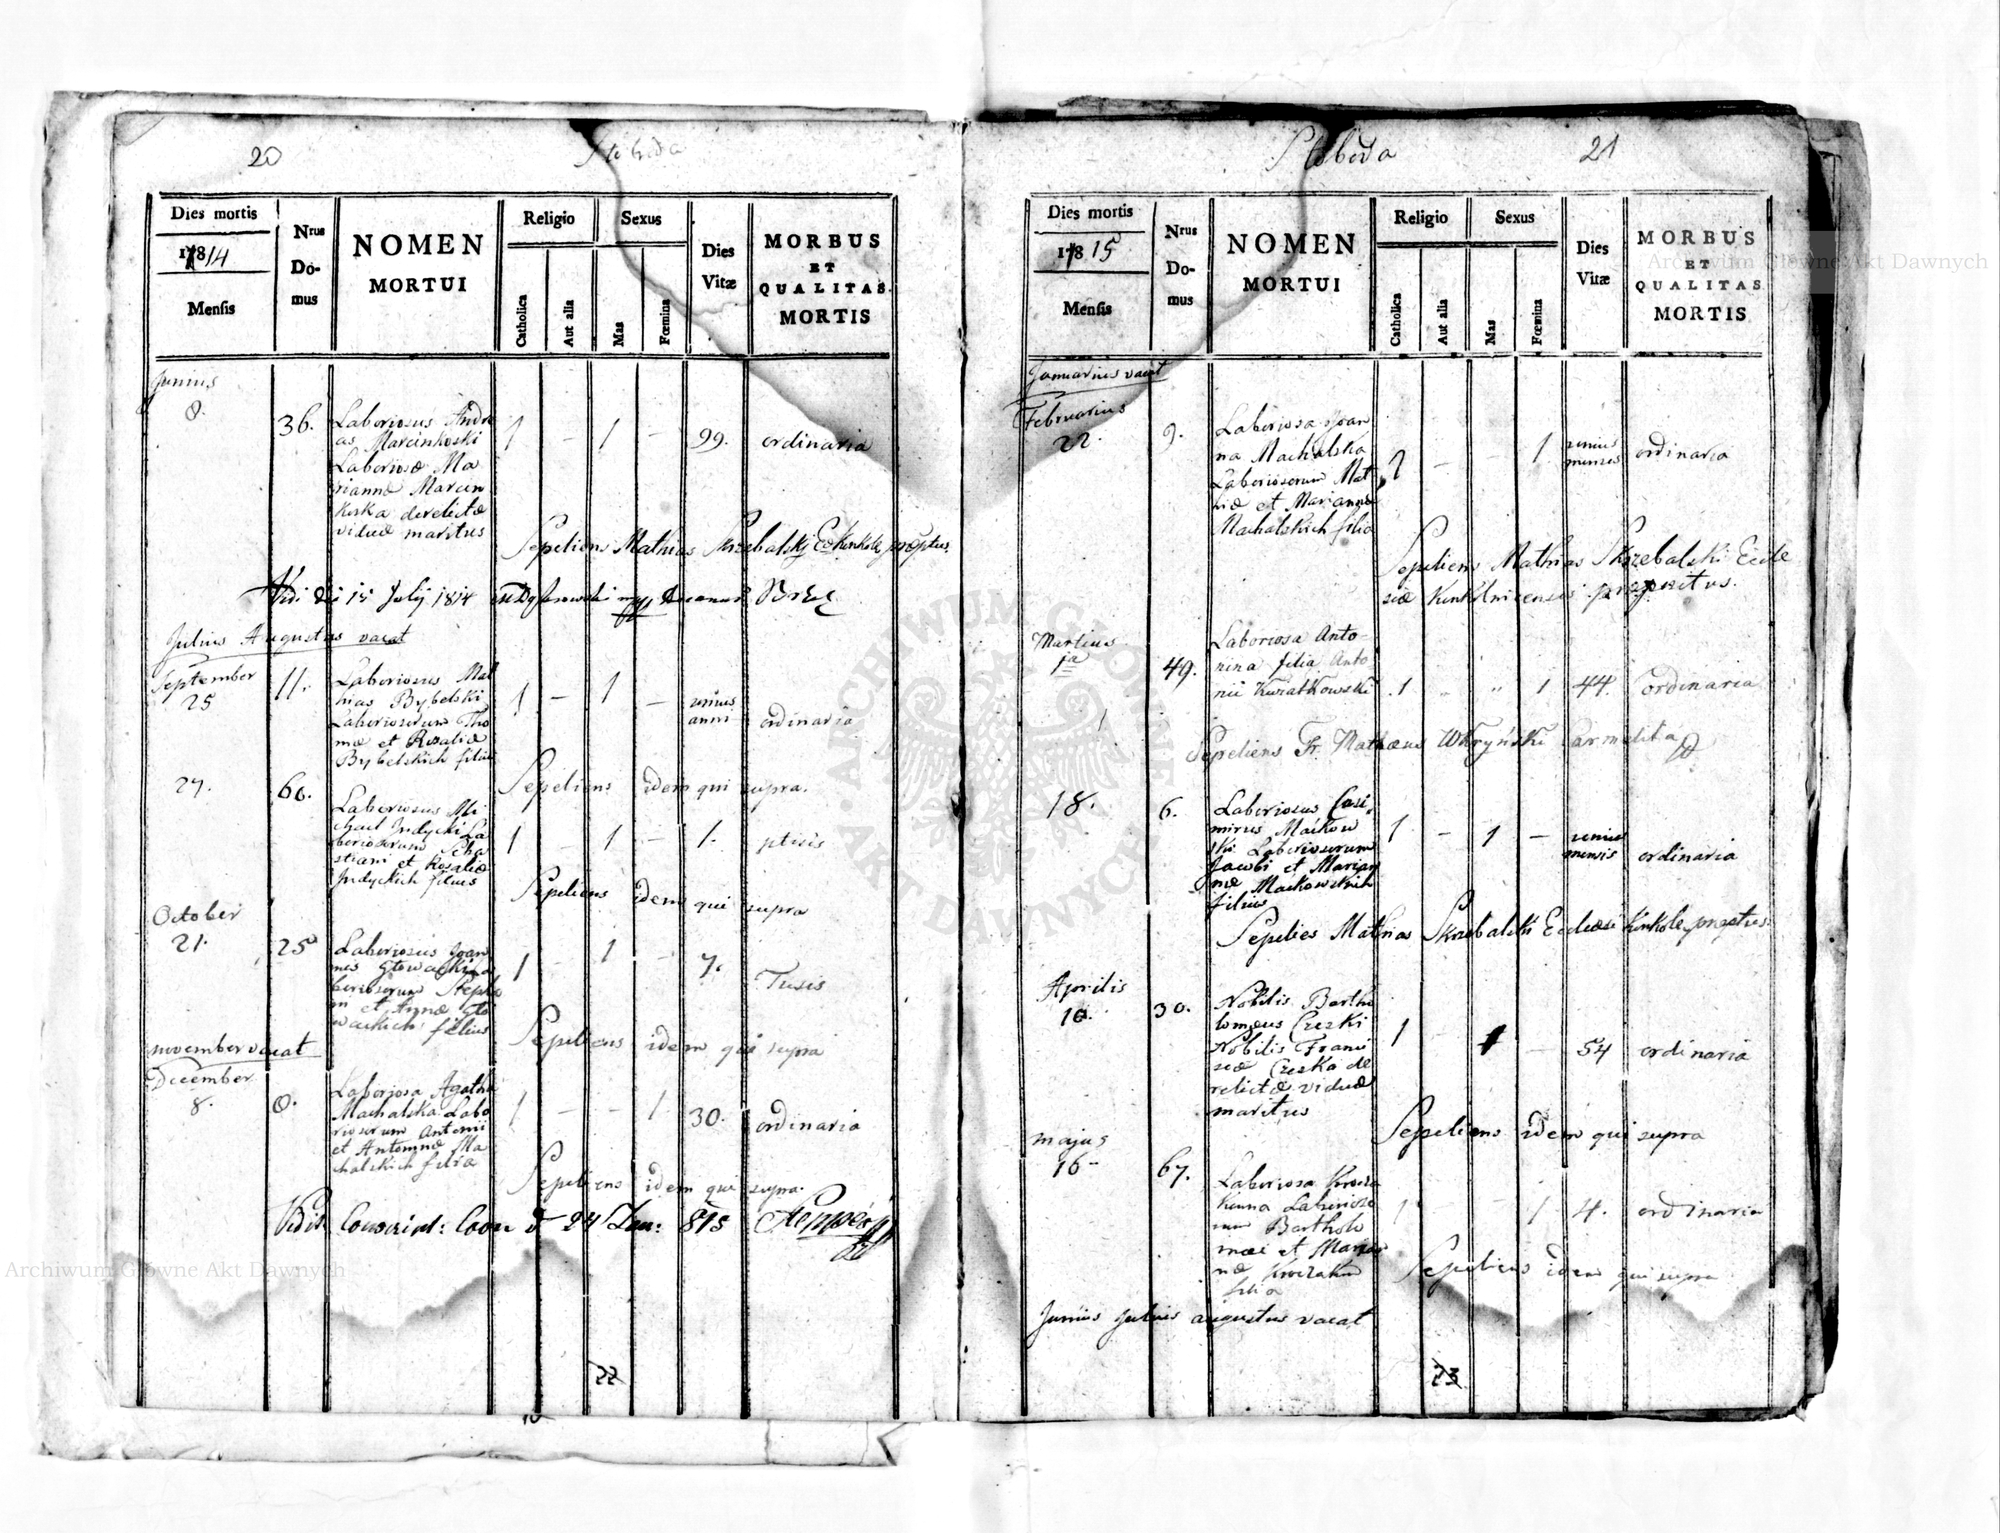 20
Słoboda
Dies mortis
1814
Mensis
Nrus
Do-
mus
NOMEN
MORTUI
Religio
Catholica
Aut alia
Sexus
Mas
Fœmina
Dies
Vitæ
MORBUS
ET
QUALITAS
MORTIS
Junius
8.
36.
Laboriosus Andre
as Marcinkoski
Laboriosæ Ma
riannæ Marcin
koska derelictæ
viduæ maritus
1 – 1 – 99. ordinaria
Sepeliens Mathias Skrzebalski
Vidi die 15 July 1814
Julius Augustus vacat
September
25
11.
Laboriosus Mat
hias Bybelski
Laboriosorum Tho
mæ et Rosaliæ
Bybelskich filius
1 – 1 – unius
anni
ordinaria
Sepeliens idem qui supra.
27.
60.
Laboriosus Mi
chael Indycki La
boriosorum Seba
stiani et Rosaliæ
Indyckich filius
1 1 – 1. ptisis
Sepeliens idem qui supra
October
21.
25
Laboriosus Joan
nes Głowacki La
boriosorum Stepha
ni et Annæ Gło
wackich filius
1 – 1 – 7. Tusis
Sepeliens idem qui supra
november vacat
December
8.
8.
Laboriosa Agatha
Machalska Labo
riosorum Antonii
et Antoninæ Ma
chalskich filia
1 – – 1 30. ordinaria
Sepeliens idem qui supra.
Vidit 24 815
22
Słoboda
21
Dies mortis
1815
Mensis
Nrus
Do-
mus
NOMEN
MORTUI
Religio
Catholica
Aut alia
Sexus
Mas
Fœmina
Dies
Vitæ
MORBUS
ET
QUALITAS
MORTIS
Januarius vacat
Februarius
22.
9.
Laboriosa Joan
na Machalska
Laboriosorum Mat
hiæ et Mariannæ
Machalskich filia
1 – – 1 unius
mensis
ordinaria
Sepeliens Mathias Skrzebalski Eccle
siæ Konkolnicensis præpositus.
Martius
1a
49.
Laboriosa Anto-
nina filia Anto
nii Kwiatkowski
1 „ „ 1 44. ordinaria
Sepeliens Fr. Mathæus Carmelita
18.
6.
Laboriosus Casi
mirus Maikow
ski Laboriosorum
Jacobi et Marian
næ Maikowskich
filius
1 – 1 – unius
mensis
ordinaria
Sepelies Mathias Skrzebalski
Aprilis
10.
30.
Nobilis Bartho
lomeus Czeski
Nobilis Franci
scæ Czeska de
relictæ viduæ
maritus
1 – 1 – 54 ordinaria
Sepeliens idem qui supra
majus
16 –
67.
Laboriosa
Laborioso
rum Bartholo
mæi et Marian
næ
filia
1 – – 1 4. ordinaria
Sepeliens idem qui supra
Junius Julius augustus vacat
23
Archiwum Główne Akt Dawnych
Archiwum Główne Akt Dawnych
ARCHIWUM GŁÓWNE AKT DAWNYCH